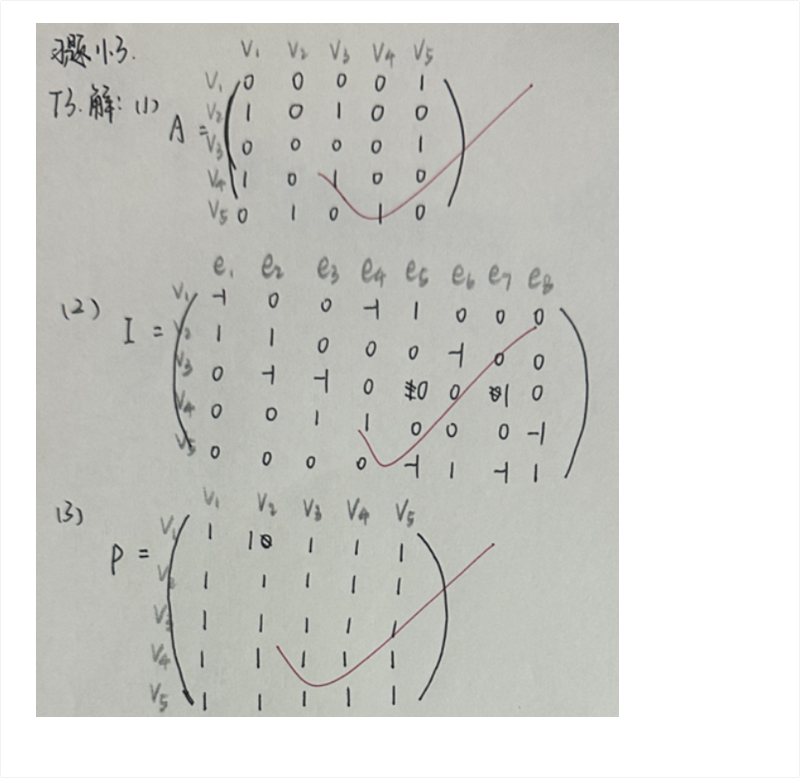 习题11.3.
T3.解:(1)
V1 V2 V3 V4 V5
V1 0 0 0 0 1
A = V2 1 0 1 0 0
V3 0 0 0 0 1
V4 1 0 1 0 0
V5 0 1 0 1 0
e1 e2 e3 e4 e5 e6 e7 e8
V1 -1 0 0 -1 1 0 0 0
(2) I = V2 1 1 0 0 0 -1 0 0
V3 0 -1 -1 0 0 0 1 0
V4 0 0 1 1 0 0 0 -1
V5 0 0 0 0 -1 1 -1 1
(3)
V1 V2 V3 V4 V5
V1 1 1 1 1 1
P = V2 1 1 1 1 1
V3 1 1 1 1 1
V4 1 1 1 1 1
V5 1 1 1 1 1